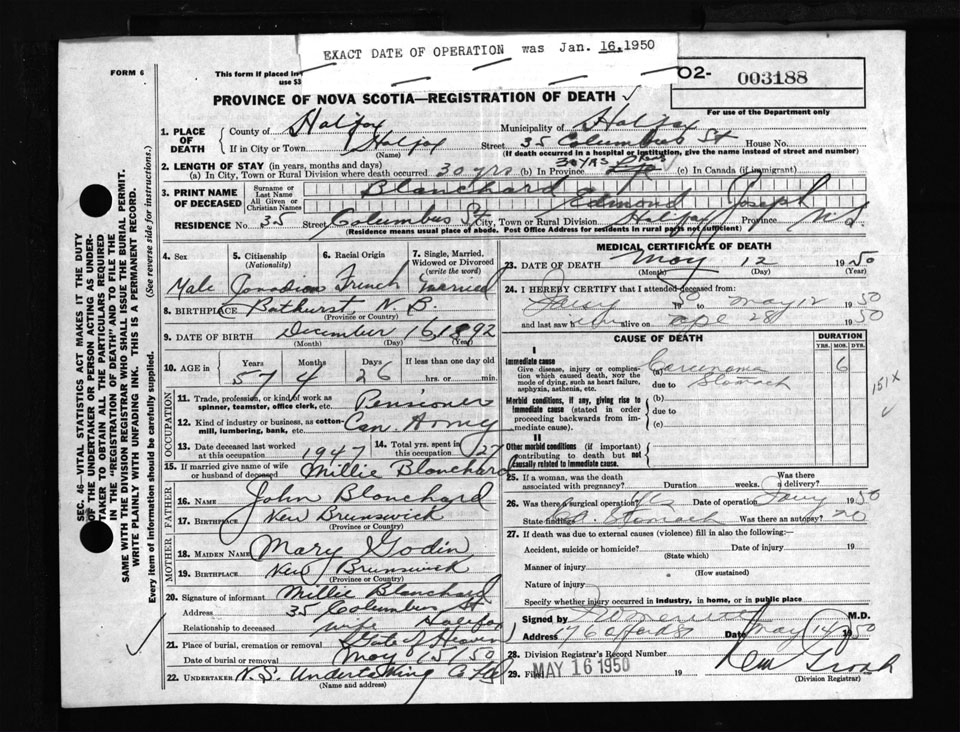 EXACT DATE OF OPERATION was Jan. 16, 1950
FORM 6
This form if placed in
use $3
O2- 003188
For use of the Department only
PROVINCE OF NOVA SCOTIA—REGISTRATION OF DEATH
1. PLACE OF DEATH
County of Halifax
Municipality of Halifax
If in City or Town Halifax (Name)
Street 35 Columbus St House No.
(If death occurred in a hospital or institution, give the name instead of street and number)
2. LENGTH OF STAY (in years, months and days)
(a) In City, Town or Rural Division where death occurred 30 yrs (b) In Province 30 yrs (c) In Canada (if immigrant)
3. PRINT NAME OF DECEASED
Surname or Last Name Blanchard
All Given or Christian Names Edmond Joseph
RESIDENCE No. 35 Street Columbus St City, Town or Rural Division Halifax Province N.S
(Residence means usual place of abode. Post Office Address for residents in rural parts not sufficient)
4. Sex
Male
5. Citizenship (Nationality)
Canadian
6. Racial Origin
French
7. Single, Married, Widowed or Divorced (write the word)
Married
8. BIRTHPLACE Bathurst, N. B.
(Province or Country)
9. DATE OF BIRTH December 16 1892
(Month) (Day) (Year)
10. AGE in
Years Months Days If less than one day old
57 4 26 hrs. or min.
OCCUPATION
11. Trade, profession, or kind of work as spinner, teamster, office clerk, etc. Pensioner
12. Kind of industry or business, as cotton-mill, lumbering, bank, etc. Can. Army
13. Date deceased last worked at this occupation 1947
14. Total yrs. spent in this occupation 27
15. If married give name of wife or husband of deceased Millie Blanchard
FATHER
16. Name John Blanchard
17. Birthplace New Brunswick
(Province or Country)
MOTHER
18. Maiden Name Mary Godin
19. Birthplace New Brunswick
(Province or Country)
20. Signature of informant Millie Blanchard
Address 35 Columbus St Halifax
Relationship to deceased wife
21. Place of burial, cremation or removal Gate of Heaven
Date of burial or removal May 15/50
22. UNDERTAKER N.S. Undertaking Co Ltd
(Name and address)
MEDICAL CERTIFICATE OF DEATH
23. DATE OF DEATH May 12 1950
(Month) (Day) (Year)
24. I HEREBY CERTIFY that I attended deceased from:
50 to May 12 1950
and last saw him alive on Apl 28 1950
CAUSE OF DEATH
DURATION
YRS. MOS. DYS.
I
Immediate cause
Give disease, injury or complication which caused death, NOT the mode of dying, such as heart failure, asphyxia, asthenia, etc.
(a) Carcinoma 6
due to Stomach
151X
Morbid conditions, if any, giving rise to immediate cause (stated in order proceeding backwards from immediate cause).
(b)
due to
(c)
II
Other morbid conditions (if important) contributing to death but not causally related to immediate cause.
25. If a woman, was the death associated with pregnancy? Duration weeks. Was there a delivery?
26. Was there a surgical operation? Yes Date of operation 1950
State findings Ca. Stomach Was there an autopsy? no
27. If death was due to external causes (violence) fill in also the following:
Accident, suicide or homicide? Date of injury 19
(State which)
Manner of injury
(How sustained)
Nature of injury
Specify whether injury occurred in industry, in home, or in public place
Signed by M.D.
Address Date May 14 1950
28. Division Registrar's Record Number
29. Filed MAY 16 1950 19
(Division Registrar)
SEC. 46 - VITAL STATISTICS ACT MAKES IT THE DUTY
OF THE UNDERTAKER OR PERSON ACTING AS UNDER-
TAKER TO OBTAIN ALL THE PARTICULARS REQUIRED
IN THE "REGISTRATION OF DEATH" AND TO FILE THE
SAME WITH THE DIVISION REGISTRAR WHO SHALL ISSUE THE BURIAL PERMIT.
WRITE PLAINLY WITH UNFADING INK. THIS IS A PERMANENT RECORD.
Every item of information should be carefully supplied. (See reverse side for instructions.)